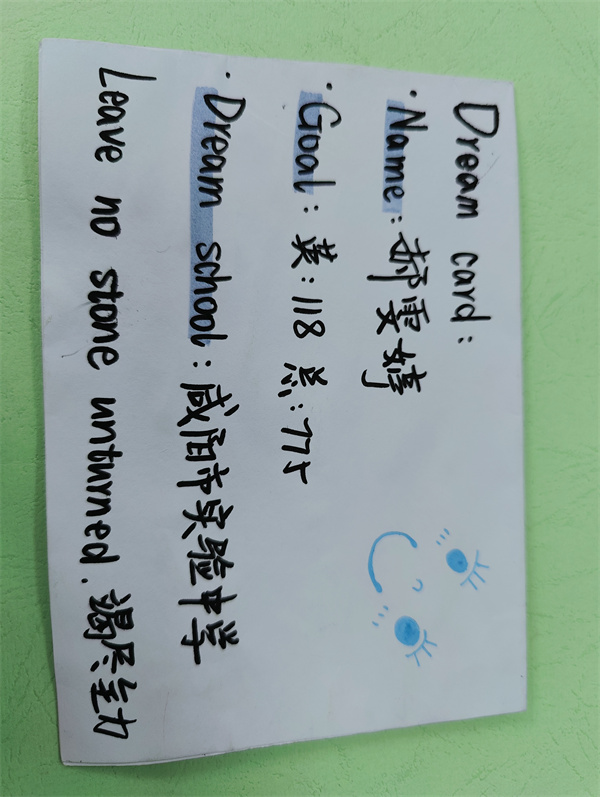 Dream card:
· Name: 郝雯婷
· Goal: 英:118 总:775
· Dream school: 咸阳市实验中学
Leave no stone unturned. 竭尽全力